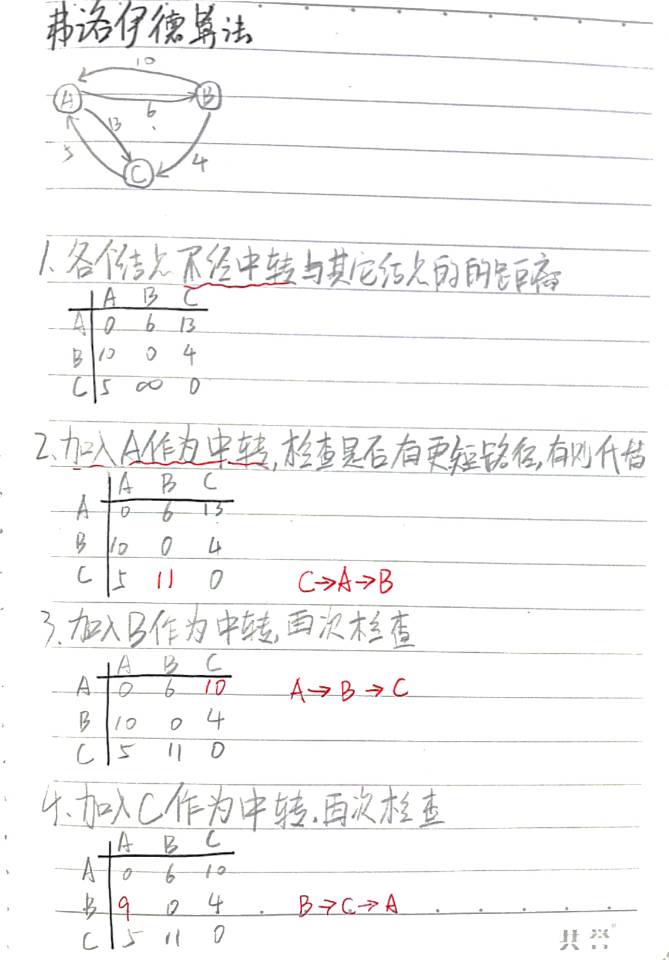 弗洛伊德算法
10
A B
6
13
5 4
C
1、各个结点不经中转与其它结点的的距离
A B C
A 0 6 13
B 10 0 4
C 5 ∞ 0
2、加入A作为中转,检查是否有更短路径,有则代替
A B C
A 0 6 13
B 10 0 4
C 5 11 0 C→A→B
3、加入B作为中转,再次检查
A B C
A 0 6 10 A→B→C
B 10 0 4
C 5 11 0
4、加入C作为中转,再次检查
A B C
A 0 6 10
B 9 0 4 B→C→A
C 5 11 0